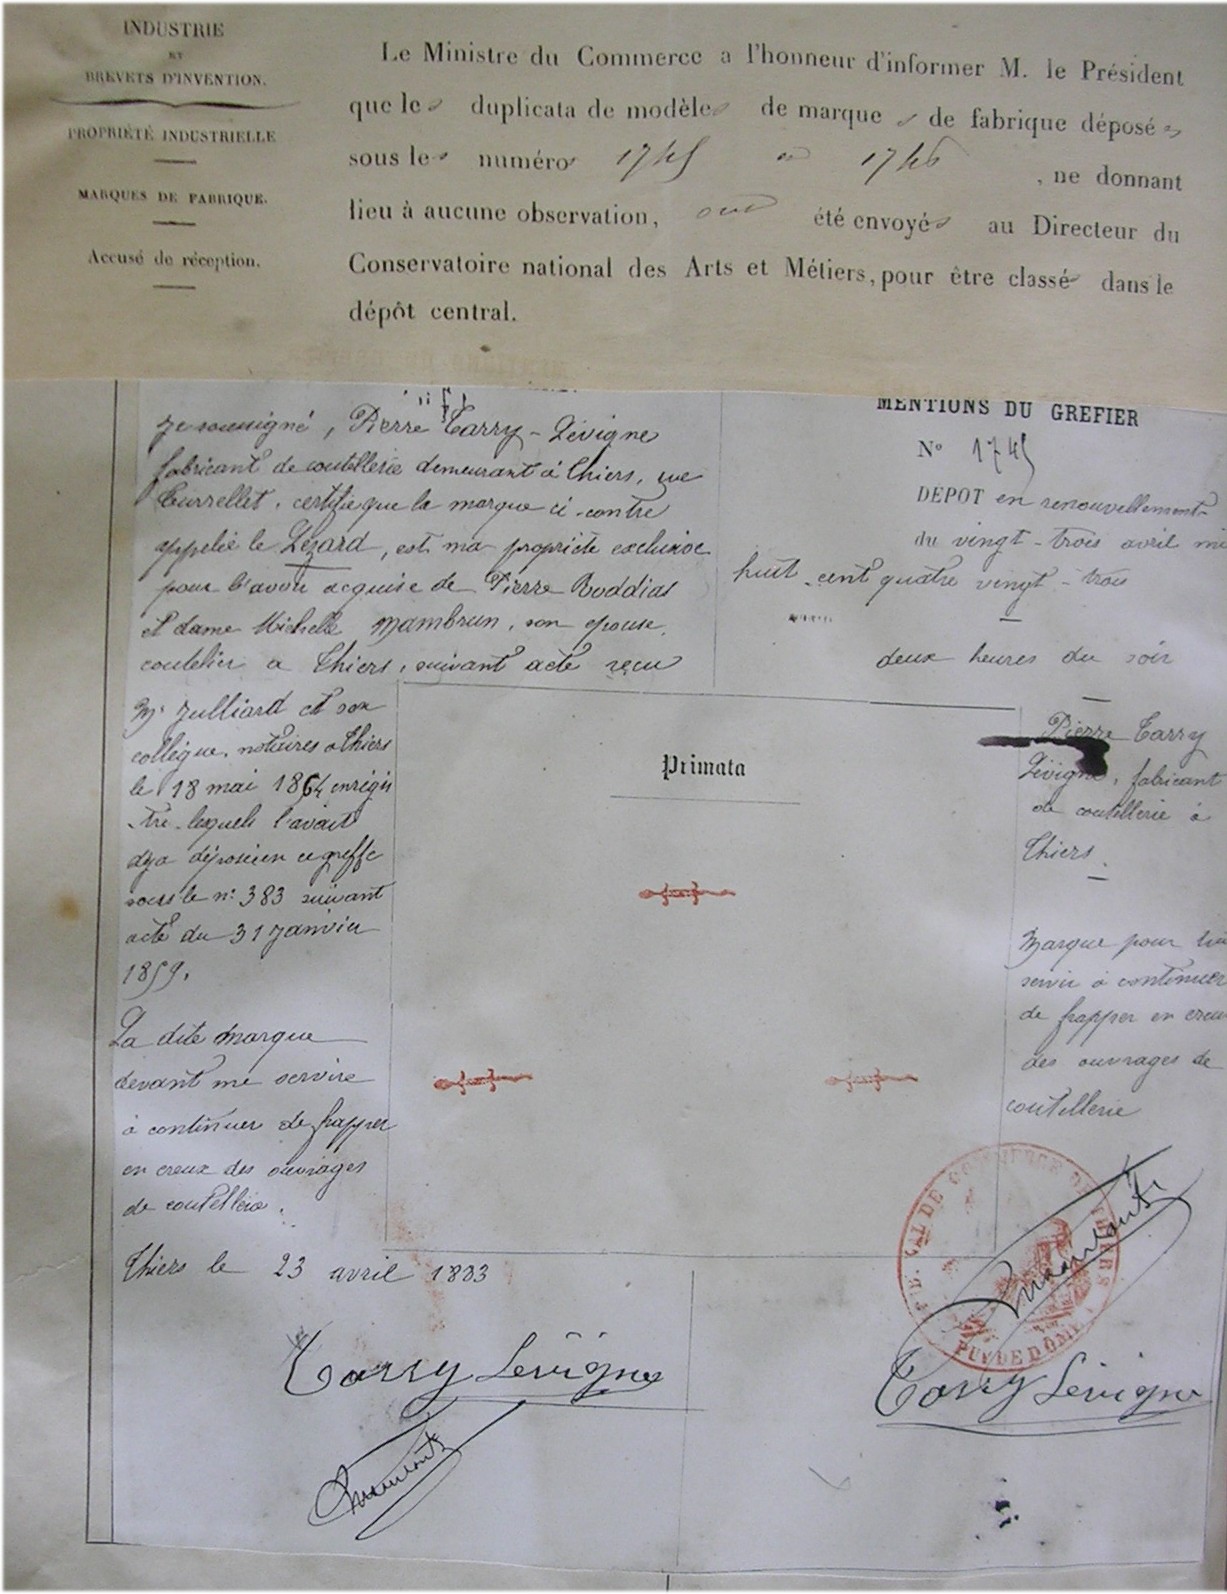 INDUSTRIE
ET
BREVETS D'INVENTION.
PROPRIÉTÉ INDUSTRIELLE
MARQUES DE FABRIQUE.
Accusé de réception.
Le Ministre du Commerce a l'honneur d'informer M. le Président
que les duplicata de modèles de marques de fabrique déposés
sous les numéros 1745 et 1746, ne donnant
lieu à aucune observation, ont été envoyés au Directeur du
Conservatoire national des Arts et Métiers, pour être classés dans le
dépôt central.
Je soussigné, Pierre Tarry-Lévigne
fabricant de coutellerie demeurant à Thiers, rue
Durrellet, certifie que la marque ci-contre
appelée le Lézard, est ma propriété exclusive
pour l'avoir acquise de Pierre Boddias
et dame Michelle Mambrun, son épouse,
coutelier a Thiers, suivant acte reçu
Me Julliard et son
collègue, notaires à Thiers
le 18 mai 1864 enregis
tré, lesquels l'avait
deja déposée en ce greffe
sous le n: 383 suivant
acte du 31 janvier
1859.
La dite marque
devant me servire
à continuer de frapper
en creux des ouvrages
de coutellerie.
Thiers le 23 avril 1883
Tarry Lévigne
Primata
MENTIONS DU GREFIER
No 1745
DÉPOT en renouvellement
du vingt-trois avril mil
huit-cent quatre vingt-trois
deux heures du soir
Pierre Tarry
Lévigne, fabricant
de coutellerie à
Thiers.
Marque pour lui
servir à continuer
de frapper en creux
des ouvrages de
coutellerie
TRIBUNAL DE COMMERCE DE THIERS
PUY DE DÔME
Tarry Lévigne